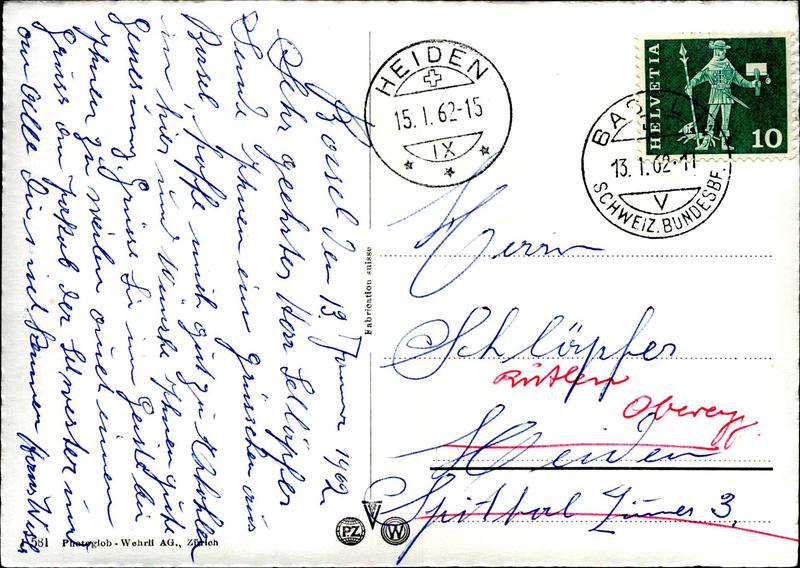 Basel den 13 Januar 1962
Sehr geehrter Herr Schläpfer
Sende Ihnen ein Grüsschen aus
Basel, hoffe mich gut zu
im hier und Wünsche Ihnen gute
Genesung, Grüsse Sie im Geiste bei
Ihnen zu weilen auch einen
Gruss an Jakob der Schwester und
an Alle
A 581 Photoglob - Wehrli AG., Zürich
Fabrication suisse
HEIDEN
15. I. 62-15
IX
HELVETIA
10
BASEL
13. I. 62-11
V
SCHWEIZ. BUNDESBF.
Herrn
Schläpfer
Rütlen
Oberegg
Heiden
Spittal Zimmer 3.
PZ
W